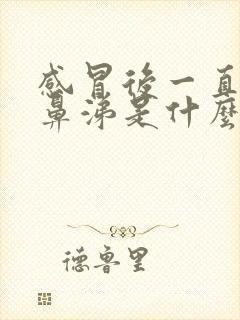 感冒後一直
鼻涕是什麼
德魯里